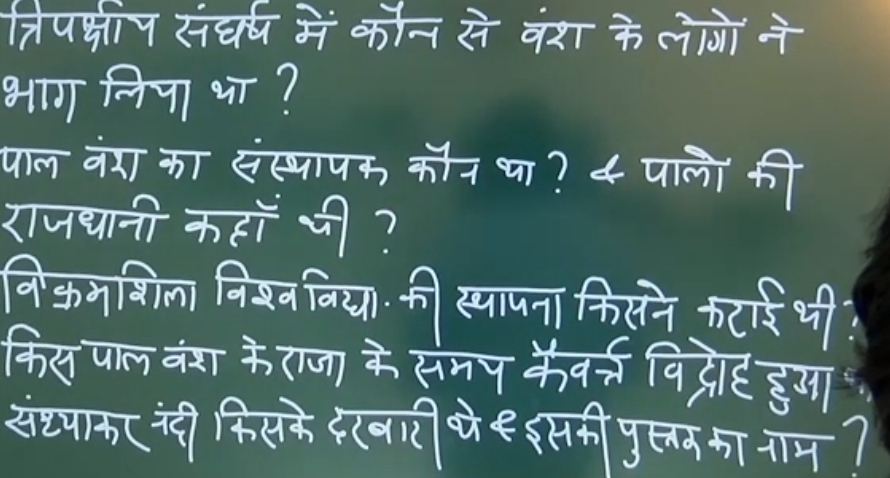 त्रिपक्षीय संघर्ष में कौन से वंश के लोगों ने
भाग लिया था ?
पाल वंश का संस्थापक कौन था ? & पालों की
राजधानी कहाँ थी ?
विक्रमशिला विश्वविद्या. की स्थापना किसने कराई थी ?
किस पाल वंश के राजा के समय कैवर्त्त विद्रोह हुआ
संध्याकर नंदी किसके दरबारी थे & इसकी पुस्तक का नाम ?